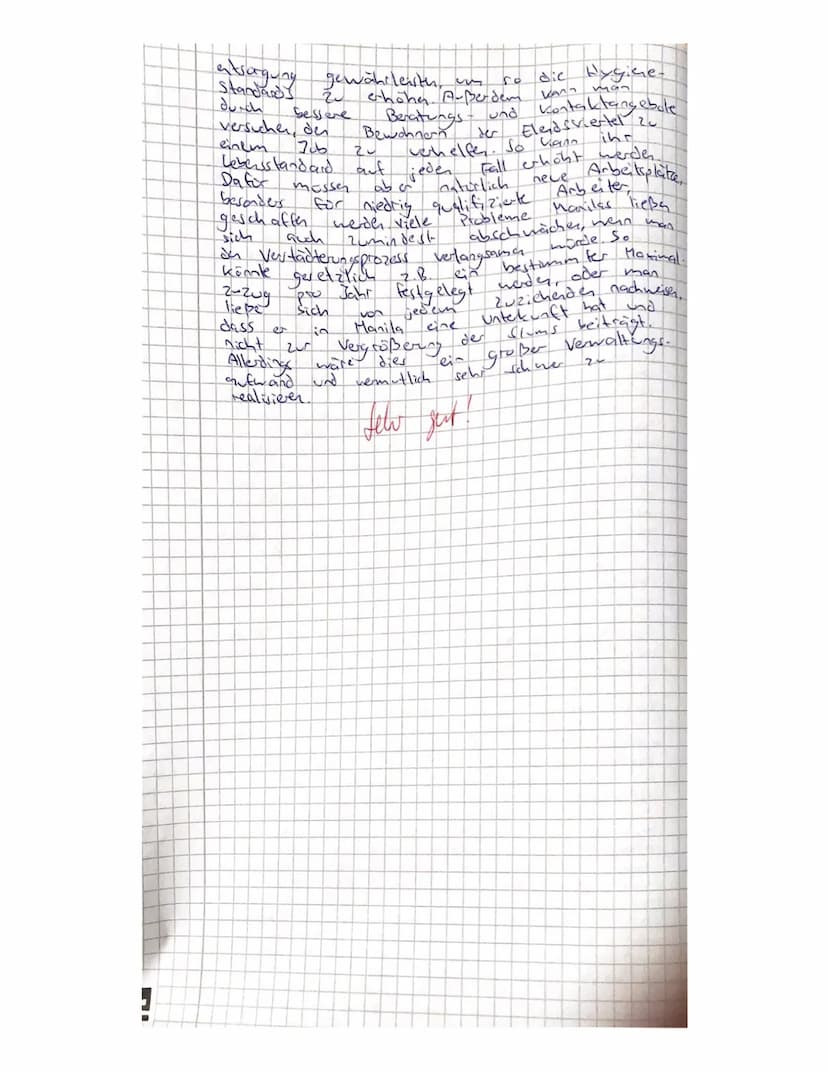 entsorgung gewährleisten, um so die Hygiene-
standards zu erhöhen. Außerdem kann man
durch bessere Beratungs- und Kontaktangebote
versuchen, den Bewohnern der Elendsviertel zu
einem Job zu verhelfen. So kann ihr
Lebensstandard auf jeden Fall erhöht werden.
Dafür müssen aber natürlich neue Arbeitsplätze,
besonders für niedrig qualifizierte Arbeiter,
geschaffen werden. Viele Probleme Manilas ließen
sich auch zumindest abschwächen, wenn man
den Verstädterungsprozess verlangsamen würde. So
könnte gesetzlich z.B. ein bestimmter Maximal-
zuzug pro Jahr festgelegt werden, oder man
ließe sich von jedem zuziehenden nachweisen,
dass er in Manila eine Unterkunft hat und
nicht zur Vergrößerung der Slums beiträgt.
Allerdings wäre dies ein großer Verwaltungs-
aufwand und vermutlich sehr schwer zu
realisieren.
Sehr gut!